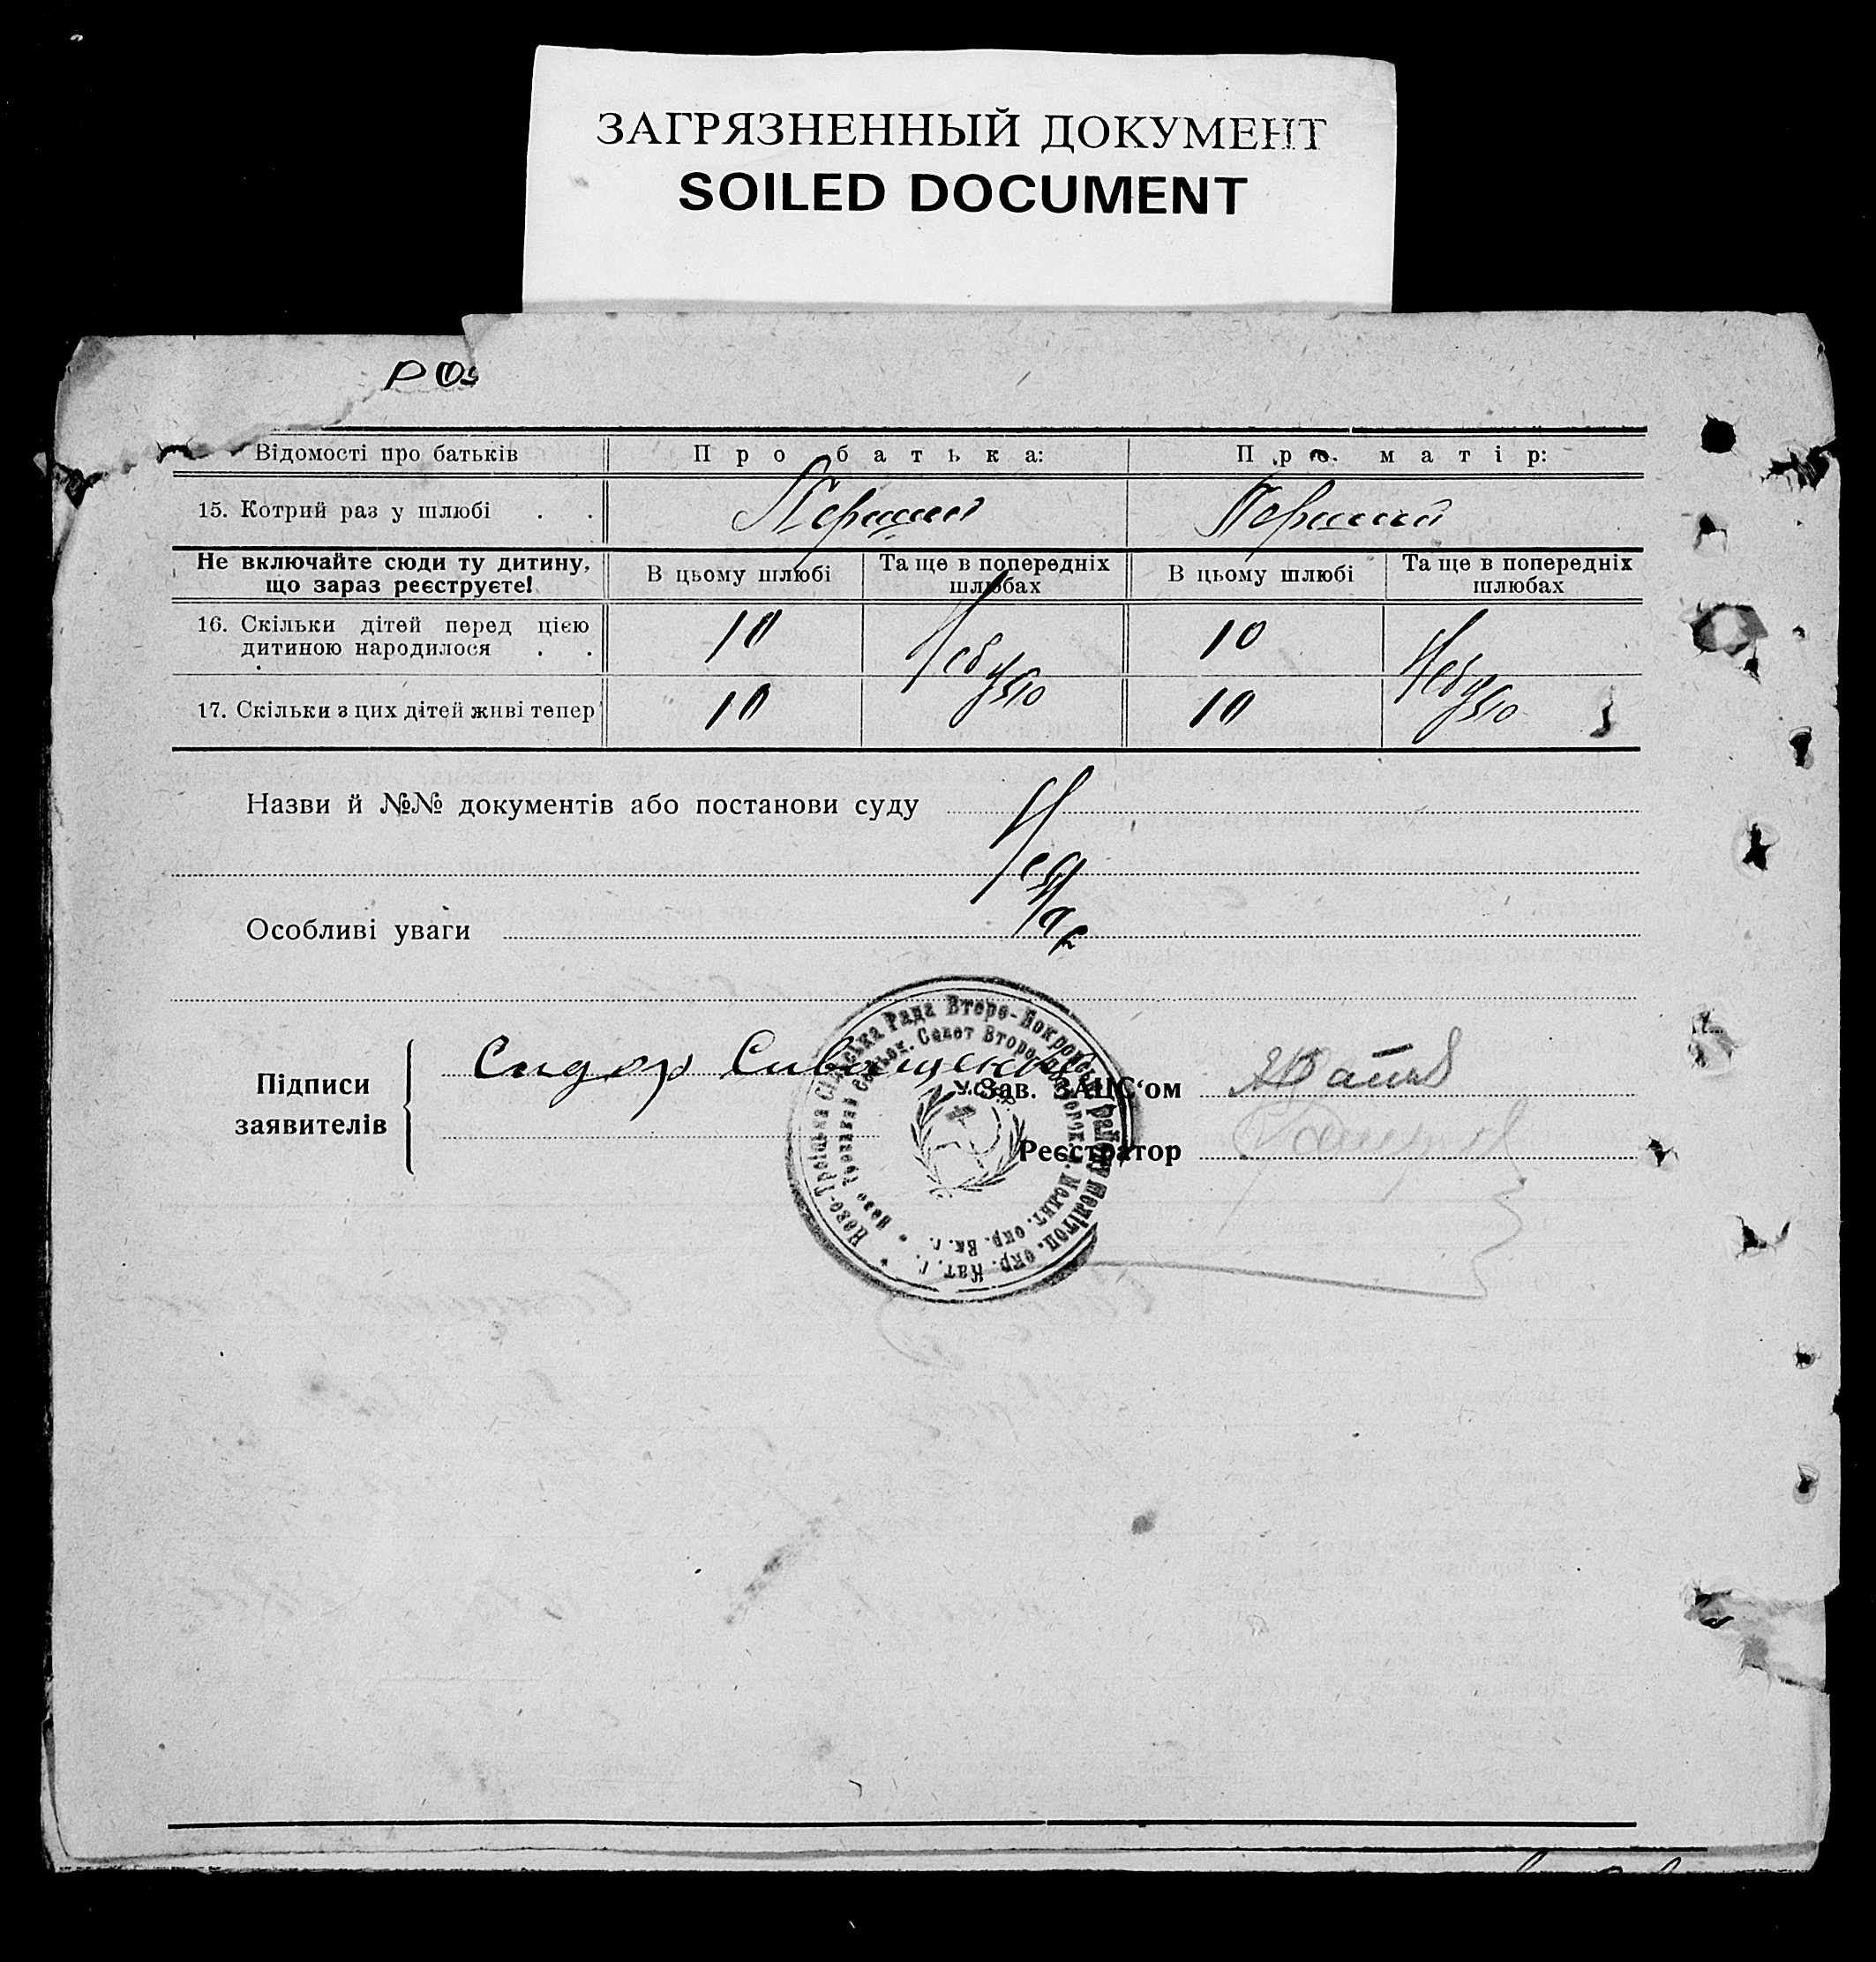 ЗАГРЯЗНЕННЫЙ ДОКУМЕНТ
SOILED DOCUMENT
Відомості про батьків Про батька: Про матір:
15. Котрий раз у шлюбі . . Перший Перший
Не включайте сюди ту дитину, що зараз реєструєте! В цьому шлюбі Та ще в попередніх шлюбах В цьому шлюбі Та ще в попередніх шлюбах
16. Скільки дітей перед цією
дитиною народилося . . 10 Небуло 10 Небуло
17. Скільки з цих дітей живі тепер 10 10
Назви й №№ документів або постанови суду
Немає
Особливі уваги
Підписи
заявителів
Сидор Сиващенко
Зав. ЗАЦС‘ом
Реєстратор
Ново-Троїцька Сільська Рада Второ-Покровськ. району Мелітоп. окр. Кат. г.